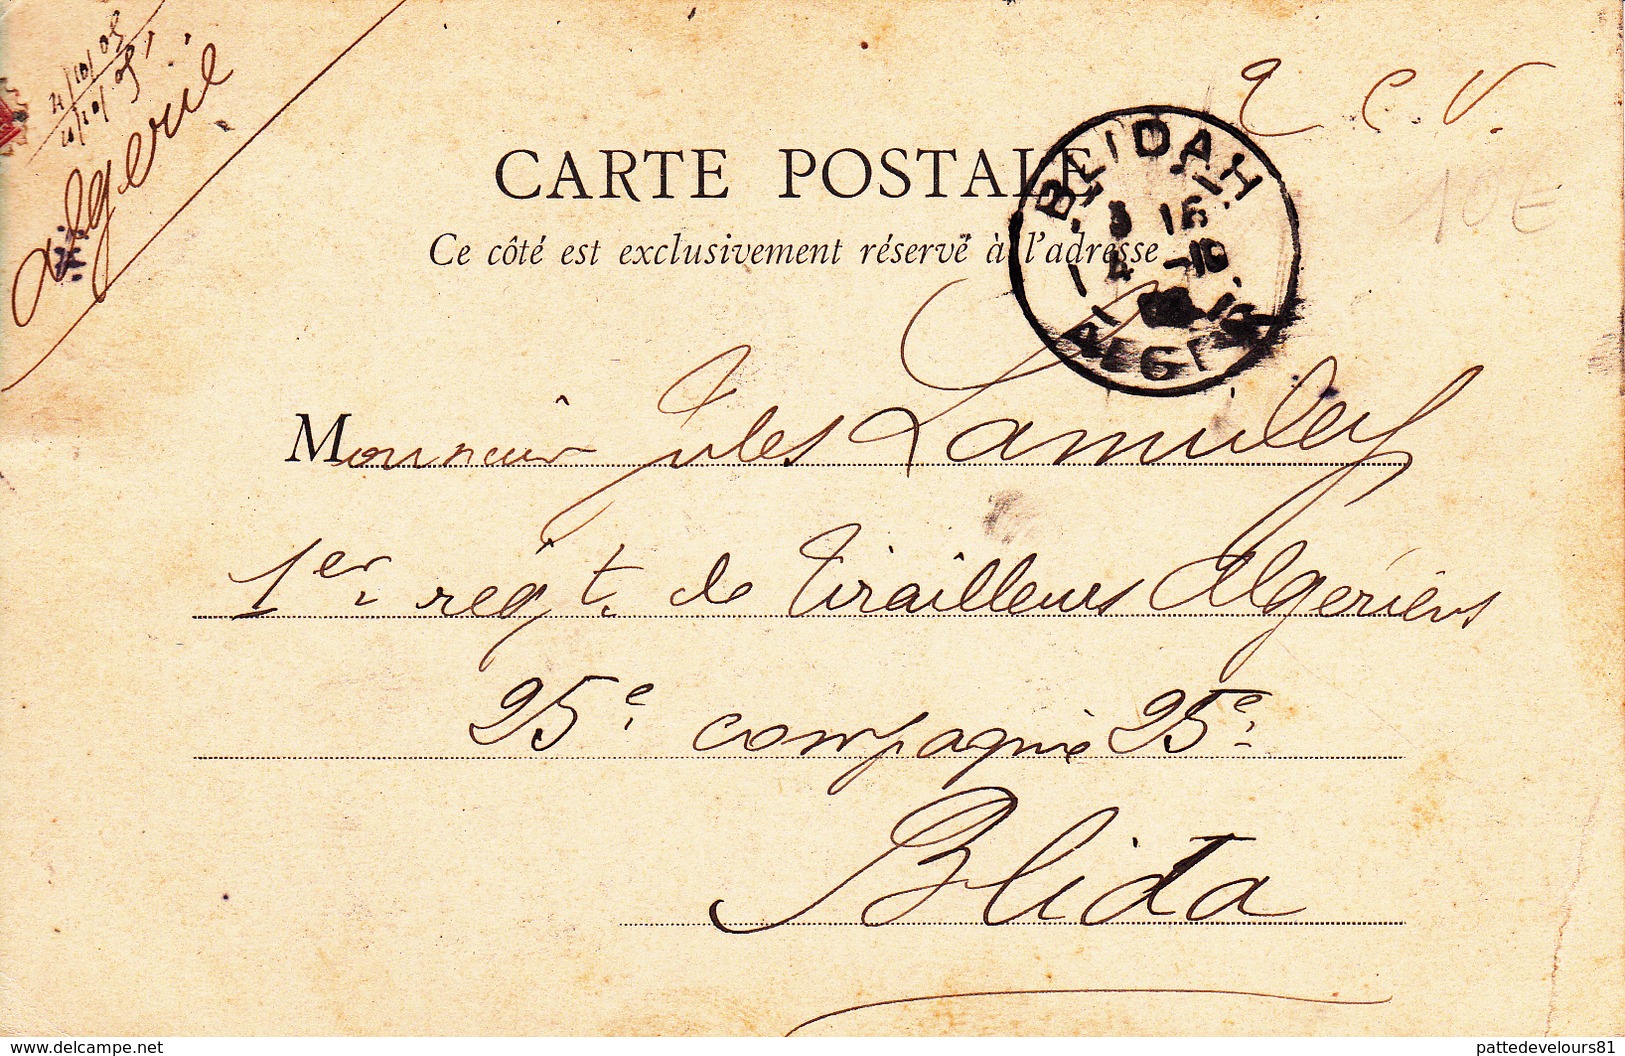 Algerie
T. C. V.
10 E
CARTE POSTALE
Ce côté est exclusivement réservé à l'adresse
BLIDAH
3 15
4 -10
ALGER
Monsieur Jules
1er regt. de Tirailleurs Algériens
25e compagnie 25e
Blida
www.delcampe.net
pattedevelours81